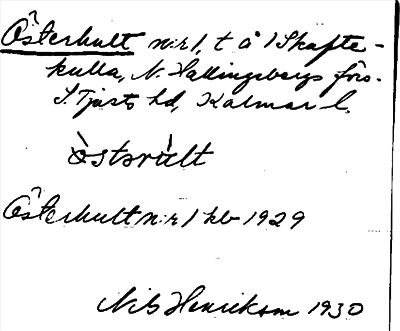 Österhult n:r 1, t å 1 Skafte-
kulla, N. Hallingebergs förs.
S. Tjusts hd, Kalmar l.
òstərúlt
Österhult n:r 1 kb 1929
Nils Henrikson 1930